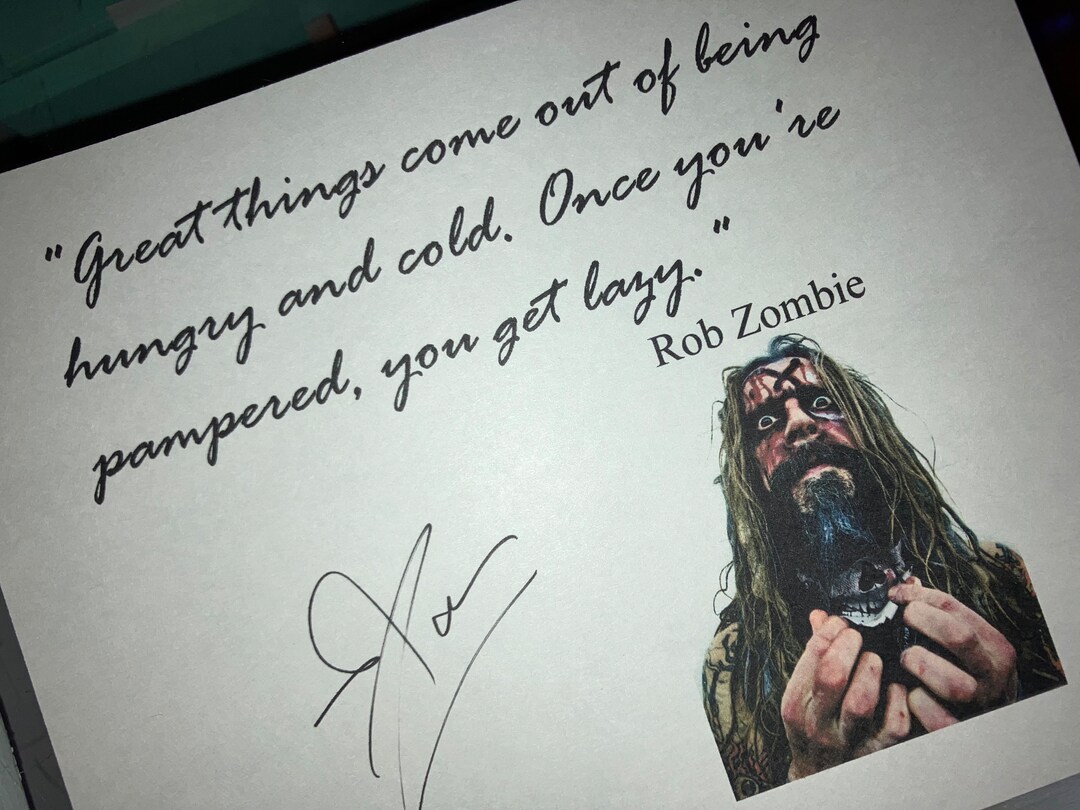 "Great things come out of being
hungry and cold. Once you're
pampered, you get lazy."
Rob Zombie